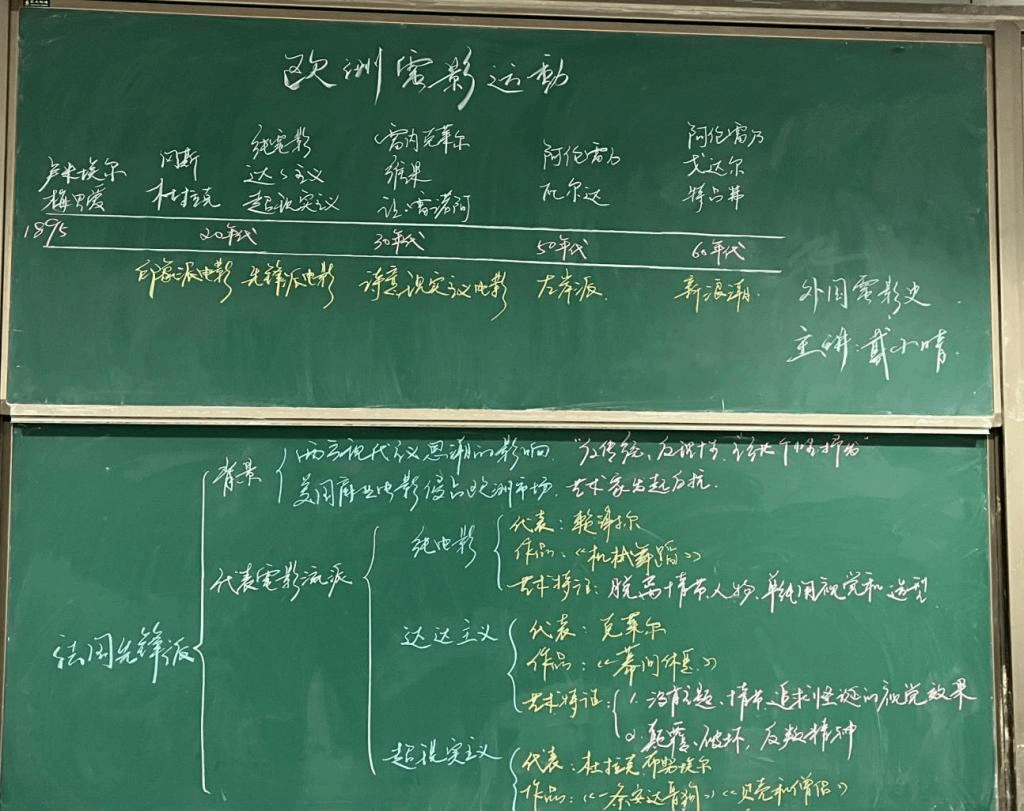 欧洲電影运動
卢米埃尔 梅里爱
冈斯 杜拉克
纯電影 达达主义 超现实主义
雷内克莱尔 维果 让·雷诺阿
阿伦雷乃 瓦尔达
阿伦雷乃 戈达尔 特吕弗
1895 20年代 30年代 50年代 60年代
印象派电影 先锋派电影 诗意现实主义电影 左岸派 新浪潮
外国電影史
主讲:戴小晴
法国先锋派
背景
西方现代主义思潮的影响 "反传统、反
美国商业电影侵占欧洲市场,艺术家发起反抗.
代表電影流派
纯电影
代表:
作品:《机械舞蹈》
艺术特征:脱离情节、人物,单纯用视觉和造型
达达主义
代表:克莱尔
作品:《幕间休息》
艺术特征:
1.没有主题、情节,追求怪诞的视觉效果
2.颠覆、破坏,反叛精神
超现实主义
代表:杜拉克 布努埃尔
作品:《一条安达鲁狗》《贝壳和僧侣》